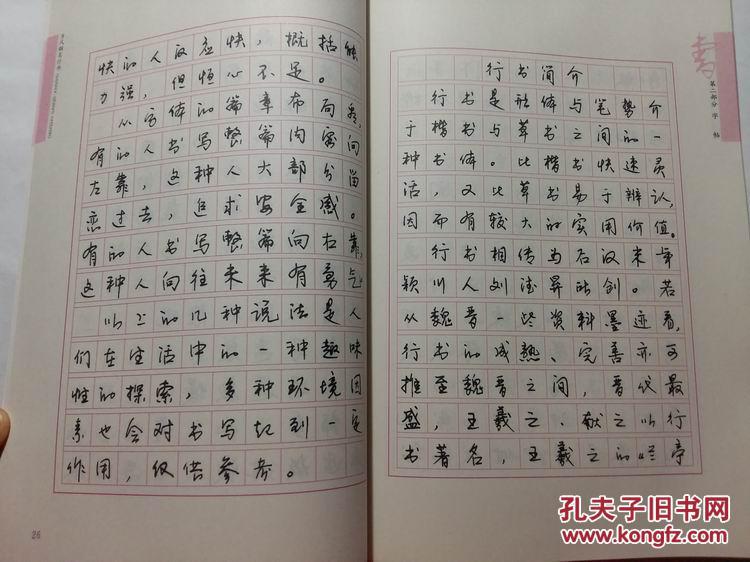 快的人反应快，概括能
力强，但恒心不足。
从字体的篇章布局看，
有的人书写整篇内容向
左靠，这种人大部分留
恋过去，追求安全感。
有的人书写整篇向右靠，
这种人向往未来有勇气。
以上的几种说法是人
们在生活中的一种趣味
性的探索，多种环境因
素也会对书写起到一定
作用，仅供参考。
26
第二部分 字帖
行书简介
行书是形体与笔势介
于楷书与草书之间的一
种书体。比楷书快速灵
活，又比草书易于辨认，
因而有较大的实用价值。
行书相传为后汉末年
颍川人刘德昇所创。若
从魏晋一些资料墨迹看，
行书的成熟、完善亦可
推至魏晋之间，晋代最
盛，王羲之、献之以行
书著名，王羲之的兰亭
孔夫子旧书网
www.kongfz.com